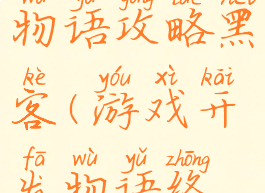 wù yǔ gōng lüè hēi
物语攻略黑
kè yóu xì kāi
客(游戏开
fā wù yǔ zhōng
发物语终